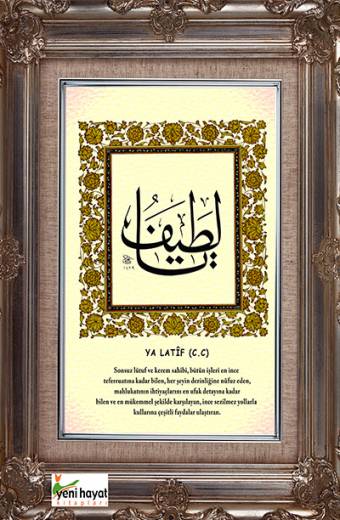 يا لطيف
١٤٢٩
YA LATÎF (C.C)
Sonsuz lütuf ve kerem sahibi, bütün işleri en ince
teferruatına kadar bilen, her şeyin derinliğine nüfuz eden,
mahlukatının ihtiyaçlarını en ufak detayına kadar
bilen ve en mükemmel şekilde karşılayan, ince sezilmez yollarla
kullarına çeşitli faydalar ulaştıran.
yeni hayat
kitapları